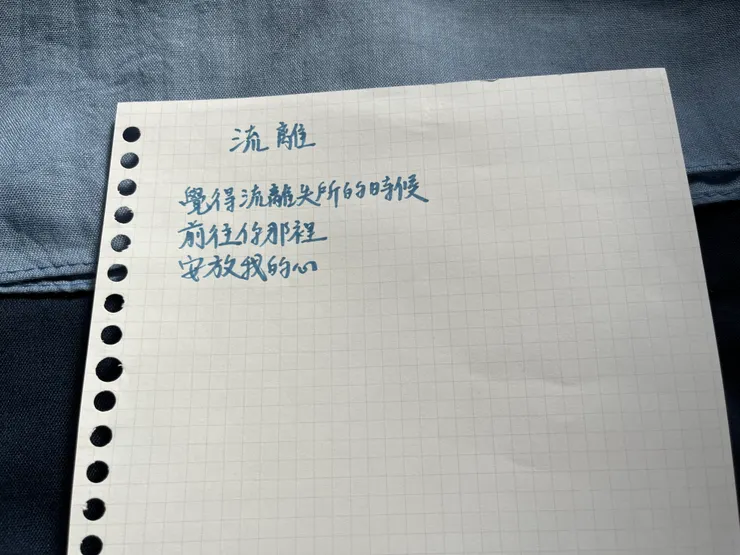 流離
覺得流離失所的時候
前往你那裡
安放我的心